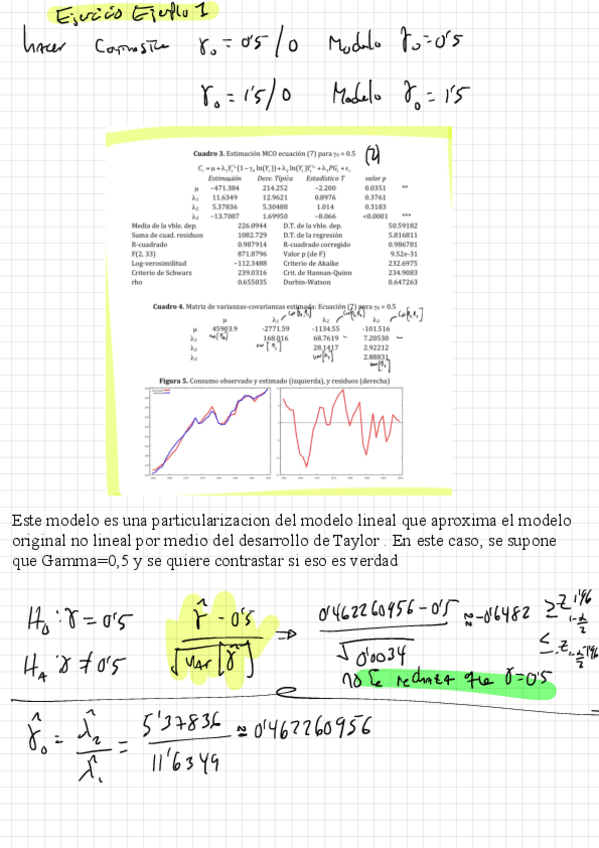 Ejercicio Ejemplo 1
hacer Contraste γ₀ = 0'5 / 0 Modelo γ₀ = 0'5
γ₀ = 1'5 / 0 Modelo γ₀ = 1'5
Cuadro 3. Estimación MCO ecuación (7) para γ₀ = 0.5
Estimación Desv. Típica Estadístico T valor p
μ −471.384 214.252 −2.200 0.0351 **
λ₁ 11.6349 12.9621 0.8976 0.3761
λ₂ 5.37836 5.30488 1.014 0.3183
λ₃ −13.7087 1.69950 −8.066 <0.0001 ***
Media de la vble. dep. 226.0944 D.T. de la vble. dep. 50.59182
Suma de cuad. residuos 1082.729 D.T. de la regresión 5.816811
R-cuadrado 0.987914 R-cuadrado corregido 0.986781
F(2, 33) 871.8796 Valor p (de F) 9.52e-31
Log-verosimilitud −112.3488 Criterio de Akaike 232.6975
Criterio de Schwarz 239.0316 Crit. de Hannan-Quinn 234.9083
rho 0.655035 Durbin-Watson 0.647263
Cuadro 4. Matriz de varianzas-covarianzas estimada: Ecuación (7) para γ₀ = 0.5
μ λ₁ λ₂ λ₃
μ 45903.9 -2771.59 -1134.55 -101.516
λ₁ 168.016 68.7619 7.20530
λ₂ 28.1417 2.92212
λ₃ 2.88831
Figura 5. Consumo observado y estimado (izquierda), y residuos (derecha)
Este modelo es una particularizacion del modelo lineal que aproxima el modelo
original no lineal por medio del desarrollo de Taylor . En este caso, se supone
que Gamma=0,5 y se quiere contrastar si eso es verdad
H₀: γ = 0'5
H_A: γ ≠ 0'5
γ̂ − 0'5 / √Var[γ̂] ⇒ 0'462260956 − 0'5 / √0'0034 ≈ −0'6482
no se rechaza que γ = 0'5
γ̂₀ = λ̂₂ / λ̂₁ = 5'37836 / 11'6349 ≈ 0'462260956